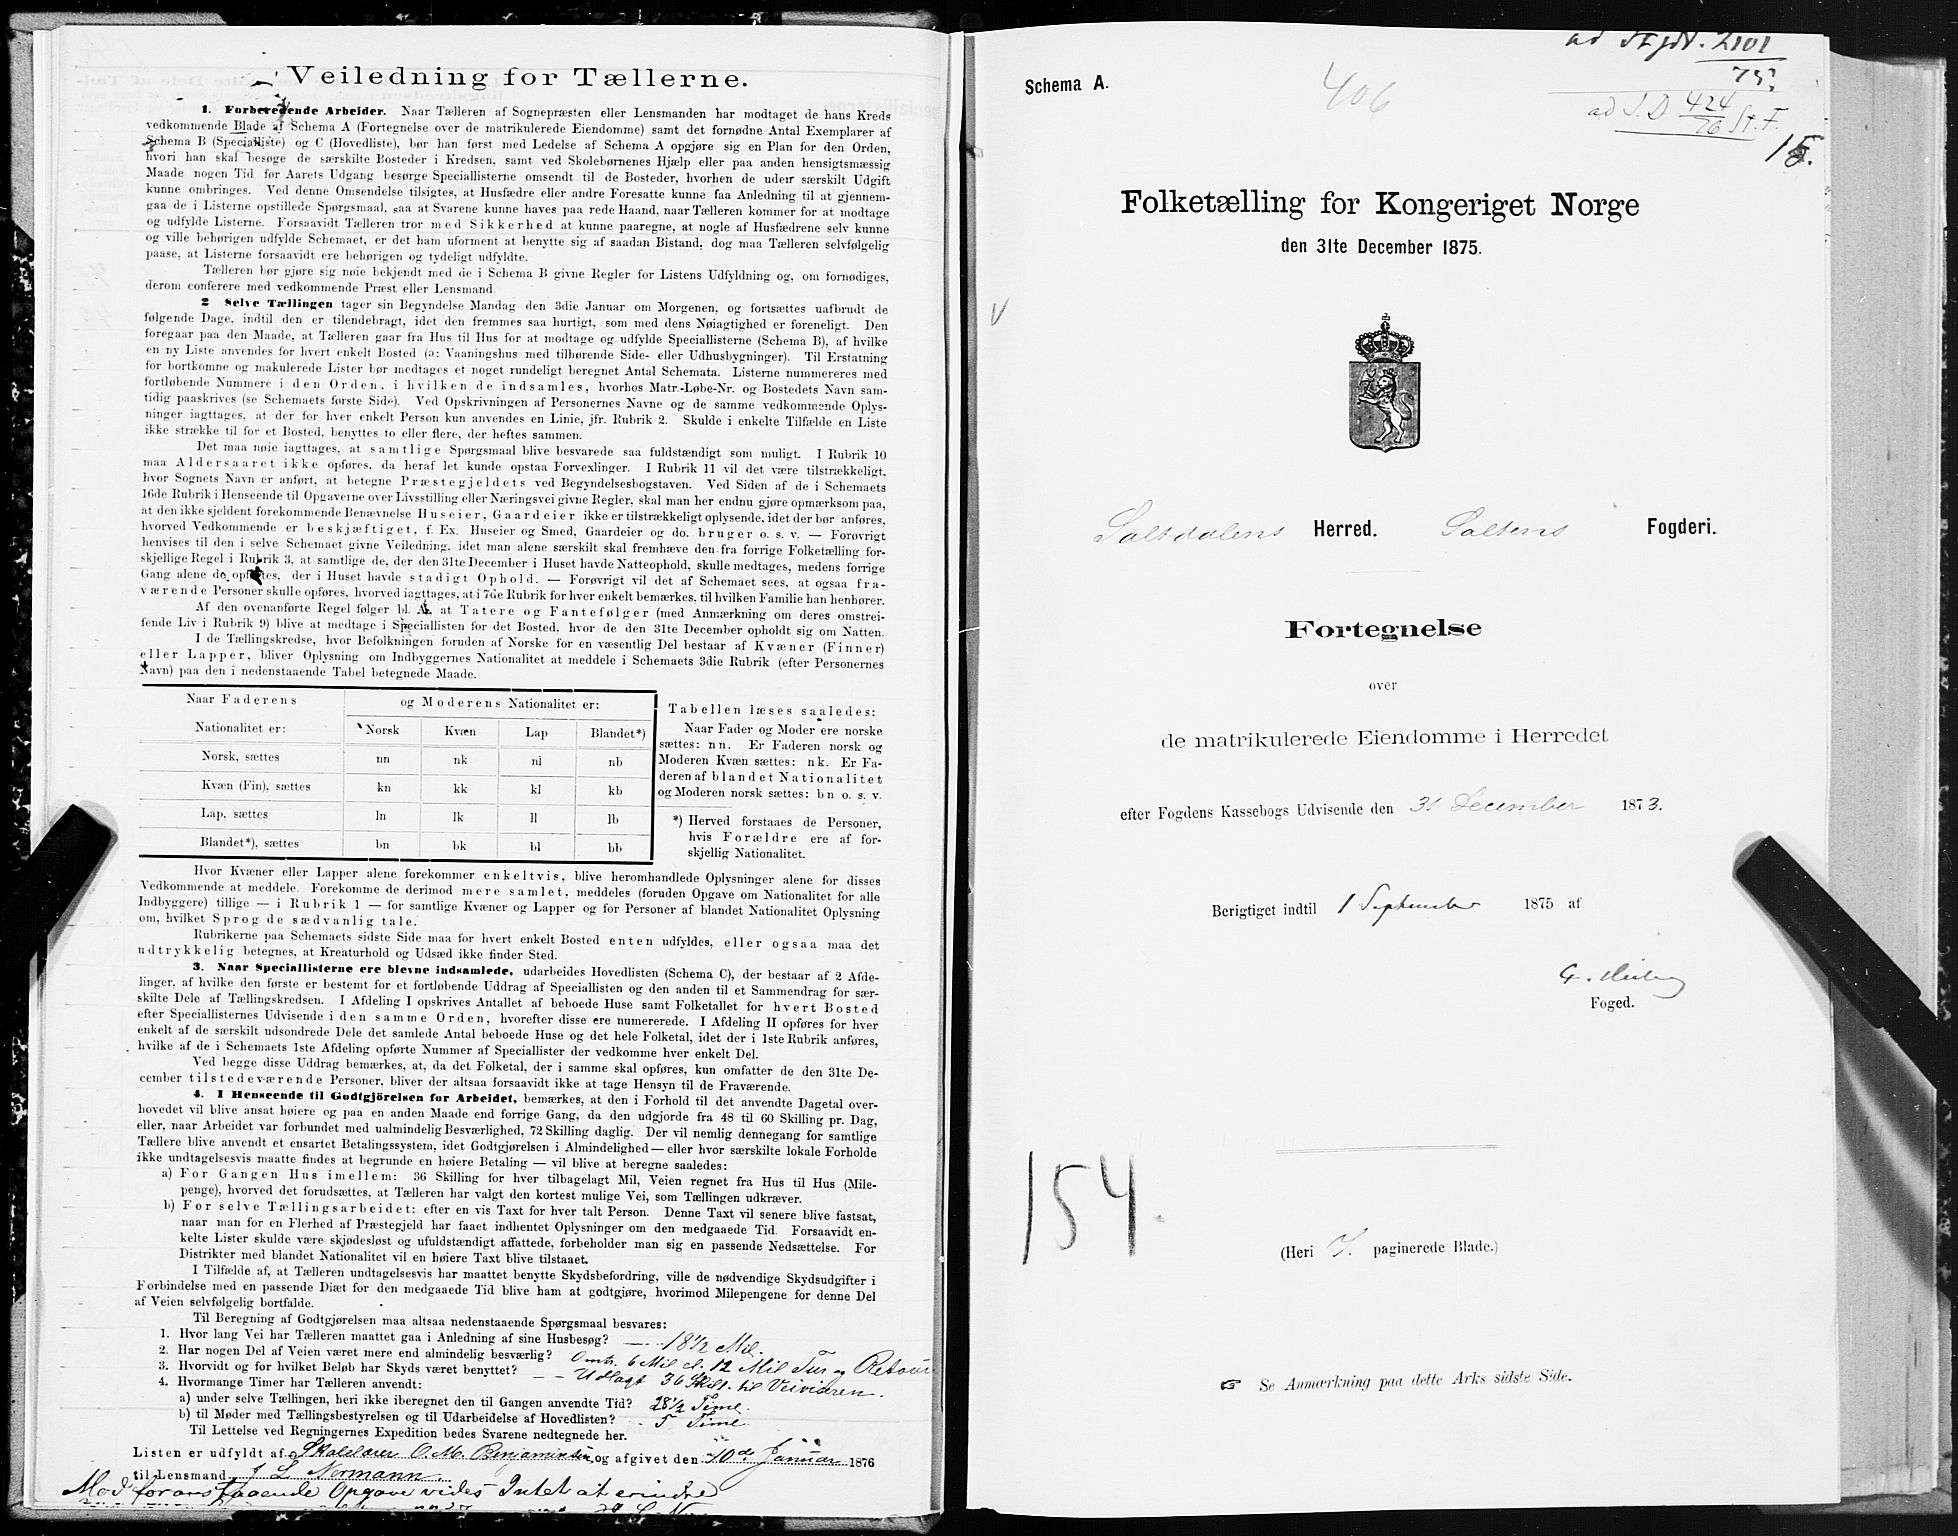 Veiledning for Tællerne.
1. Forberedende Arbeider. Naar Tælleren af Sognepræsten eller Lensmanden har modtaget de hans Kreds
vedkommende Blade af Schema A (Fortegnelse over de matrikulerede Eiendomme) samt det fornødne Antal Exemplarer af
Schema B (Specialliste) og C (Hovedliste), bør han først med Ledelse af Schema A opgjøre sig en Plan for den Orden,
hvori han skal besøge de særskilte Bosteder i Kredsen, samt ved Skolebørnenes Hjælp eller paa anden hensigtsmæssig
Maade nogen Tid før Aarets Udgang besørge Speciallisterne omsendt til de Bosteder, hvorhen de uden særskilt Udgift
kunne ombringes. Ved denne Omsendelse tilsigtes, at Husfædre eller andre Foresatte kunne faa Anledning til at gjennem-
gaa de i Listerne opstillede Spørgsmaal, saa at Svarene kunne haves paa rede Haand, naar Tælleren kommer for at modtage
og udfylde Listerne. Forsaavidt Tælleren tror med Sikkerhed at kunne paaregne, at nogle af Husfædrene selv kunne
og ville behørigen udfylde Schemaet, er det ham uforment at benytte sig af saadan Bistand, dog maa Tælleren selvfølgelig
paase, at Listerne forsaavidt ere behørigen og tydeligt udfyldte.
Tælleren bør gjøre sig nøie bekjendt med de i Schema B givne Regler for Listens Udfyldning og, om fornødiges,
derom conferere med vedkommende Præst eller Lensmand
2 Selve Tællingen tager sin Begyndelse Mandag den 3die Januar om Morgenen, og fortsættes uafbrudt de
følgende Dage, indtil den er tilendebragt, idet den fremmes saa hurtigt, som med dens Nøiagtighed er foreneligt. Den
foregaar paa den Maade, at Tælleren gaar fra Hus til Hus for at modtage og udfylde Speciallisterne (Schema B), af hvilke
en ny Liste anvendes for hvert enkelt Bosted (ɔ: Vaaningshus med tilhørende Side- eller Udhusbygninger). Til Erstatning
for bortkomne og makulerede Lister bør medtages et noget rundeligt beregnet Antal Schemata. Listerne nummereres med
fortløbende Nummere i den Orden, i hvilken de indsamles, hvorhos Matr.-Løbe-Nr. og Bostedets Navn sam-
tidig paaskrives (se Schemaets første Side). Ved Opskrivningen af Personernes Navne og de samme vedkommende Oplys-
ninger iagttages, at der for hver enkelt Person kun anvendes en Linie, jfr. Rubrik 2. Skulde i enkelte Tilfælde en Liste
ikke strække til for et Bosted, benyttes to eller flere, der heftes sammen.
Det maa nøie iagttages, at samtlige Spørgsmaal blive besvarede saa fuldstændigt som muligt. I Rubrik 10
maa Aldersaaret ikke opføres, da heraf let kunde opstaa Forvexlinger. I Rubrik 11 vil det være tilstrækkeligt,
hvor Sognets Navn er anført, at betegne Præstegjeldets ved Begyndelsesbogstaven. Ved Siden af de i Schemaets
16de Rubrik i Henseende til Opgaverne over Livsstilling eller Næringsvei givne Regler, skal man her endnu gjøre opmærksom paa,
at den ikke sjeldent forekommende Benævnelse Huseier, Gaardeier ikke er tilstrækkeligt oplysende, idet der bør anføres,
hvorved Vedkommende er beskjæftiget, f. Ex. Huseier og Smed, Gaardeier og do. bruger o. s. v. — Forøvrigt
henvises til den i selve Schemaet givne Veiledning, idet man alene særskilt skal fremhæve den fra forrige Folketælling for-
skjellige Regel i Rubrik 3, at samtlige de, der den 31te December i Huset havde Natteophold, skulle medtages, medens forrige
Gang alene de opførtes, der i Huset havde stadigt Ophold. — Forøvrigt vil det af Schemaet sees, at ogsaa fra-
værende Personer skulle opføres, hvorved iagttages, at i 7de Rubrik for hver enkelt bemærkes, til hvilken Familie han henhører.
Af den ovenanførte Regel følger bl. A. at Tatere og Fantefølger (med Anmærkning om deres omstrei-
fende Liv i Rubrik 9) blive at medtage i Speciallisten for det Bosted, hvor de den 31te December opholdt sig om Natten.
I de Tællingskredse, hvor Befolkningen foruden af Norske for en væsentlig Del bestaar af Kvæner (Finner)
eller Lapper, bliver Oplysning om Indbyggernes Nationalitet at meddele i Schemaets 3die Rubrik (efter Personernes
Navn) paa den i nedenstaaende Tabel betegnede Maade.
Naar Faderens og Moderens Nationalitet er:
Nationalitet er: Norsk Kvæn Lap Blandet*)
Norsk, sættes nn nk nl nb
Kvæn (Fin), sættes kn kk kl kb
Lap, sættes ln lk ll lb
Blandet*), sættes bn bk bl bb
Tabellen læses saaledes:
Naar Fader og Moder ere norske
sættes: nn. Er Faderen norsk og
Moderen Kvæn sættes: nk. Er Fa-
deren af blandet Nationalitet
og Moderen norsk sættes: bn o. s. v.
*) Herved forstaaes de Personer,
hvis Forældre ere af for-
skjellig Nationalitet.
Hvor Kvæner eller Lapper alene forekommer enkeltvis, blive heromhandlede Oplysninger alene for disses
Vedkommende at meddele. Forekomme de derimod mere samlet, meddeles (foruden Opgave om Nationalitet for alle
Indbyggere) tillige — i Rubrik 1 — for samtlige Kvæner og Lapper og for Personer af blandet Nationalitet Oplysning
om, hvilket Sprog de sædvanlig tale.
Rubrikerne paa Schemaets sidste Side maa for hvert enkelt Bosted enten udfyldes, eller ogsaa maa det
udtrykkelig betegnes, at Kreaturhold og Udsæd ikke finder Sted.
3. Naar Speciallisterne ere blevne indsamlede, udarbeides Hovedlisten (Schema C), der bestaar af 2 Afde-
linger, af hvilke den første er bestemt for et fortløbende Uddrag af Speciallisten og den anden til et Sammendrag for sær-
skilte Dele af Tællingskredsen. I Afdeling I opskrives Antallet af beboede Huse samt Folketallet for hvert Bosted
efter Speciallisternes Udvisende i den samme Orden, hvorefter disse ere numererede. I Afdeling II opføres for hver
enkelt af de særskilt udsondrede Dele det samlede Antal beboede Huse og det hele Folketal, idet der i 1ste Rubrik anføres,
hvilke af de i Schemaets 1ste Afdeling opførte Nummer af Speciallister der vedkomme hver enkelt Del.
Ved begge disse Uddrag bemærkes, at, da det Folketal, der i samme skal opføres, kun omfatter de den 31te De-
cember tilstedeværende Personer, bliver der altsaa forsaavidt ikke at tage Hensyn til de Fraværende.
4. I Henseende til Godtgjörelsen for Arbeidet, bemærkes, at den i Forhold til det anvendte Dagetal over-
hovedet vil blive ansat høiere og paa en anden Maade end forrige Gang, da den udgjorde fra 48 til 60 Skilling pr. Dag,
eller, naar Arbeidet var forbundet med ualmindelig Besværlighed, 72 Skilling daglig. Der vil nemlig dennegang for samtlige
Tællere blive anvendt et ensartet Betalingssystem, idet Godtgjørelsen i Almindelighed — eller hvor særskilte lokale Forholde
ikke undtagelsesvis maatte findes at begrunde en høiere Betaling — vil blive at beregne saaledes:
a) For Gangen Hus imellem: 36 Skilling for hver tilbagelagt Mil, Veien regnet fra Hus til Hus (Mile-
penge), hvorved det forudsættes, at Tælleren har valgt den kortest mulige Vei, som Tællingen udkræver.
b) For selve Tællingsarbeidet: efter en vis Taxt for hver talt Person. Denne Taxt vil senere blive fastsat,
naar man for en Flerhed af Præstegjeld har faaet indhentet Oplysninger om den medgaaede Tid. Forsaavidt en-
kelte Lister skulde være skjødesløst og ufuldstændigt affattede, forbeholder man sig en passende Nedsættelse. For
Distrikter med blandet Nationalitet vil en høiere Taxt blive tilstaaet.
I Tilfælde af, at Tælleren undtagelsesvis har maattet benytte Skydsbefordring, ville de nødvendige Skydsudgifter i
Forbindelse med en passende Diæt for den medgaaede Tid blive ham at godtgjøre, hvorimod Milepengene for denne Del
af Veien selvfølgelig bortfalde.
Til Beregning af Godtgjørelsen maa altsaa nedenstaaende Spørgsmaal besvares:
1. Hvor lang Vei har Tælleren maattet gaa i Anledning af sine Husbesøg? 18½ Mil.
2. Har nogen Del af Veien været mere end almindelig besværlig? Omtr. 6 Mil el. 12 Mil Tur og Retour
3. Hvorvidt og for hvilket Beløb har Skyds været benyttet? Udlagt 36 Skill. til Veiviseren.
4. Hvormange Timer har Tælleren anvendt:
a) under selve Tællingen, heri ikke iberegnet den til Gangen anvendte Tid? 28½ Time.
b) til Møder med Tællingsbestyrelsen og til Udarbeidelse af Hovedlisten? 5 Time
Til Lettelse ved Regningernes Expedition bedes Svarene nedtegnede her.
Listen er udfyldt af Skolelærer O. M. Benjaminsen og afgivet den 10de Januar 1876
til Lensmand J L Normann
Mod foranstaaende Opgave vides Intet at erindre
Schema A.
406
ad 2101
75.
ad J. D 424
76 St. F.
15.
Folketælling for Kongeriget Norge
den 31te December 1875.
V
Saltdalens Herred. Saltens Fogderi.
Fortegnelse
over
de matrikulerede Eiendomme i Herredet
efter Fogdens Kassebogs Udvisende den 31 December 1873.
Berigtiget indtil 1 September 1875 af
Foged.
154.
(Heri paginerede Blade.)
☞ Se Anmærkning paa dette Arks sidste Side.